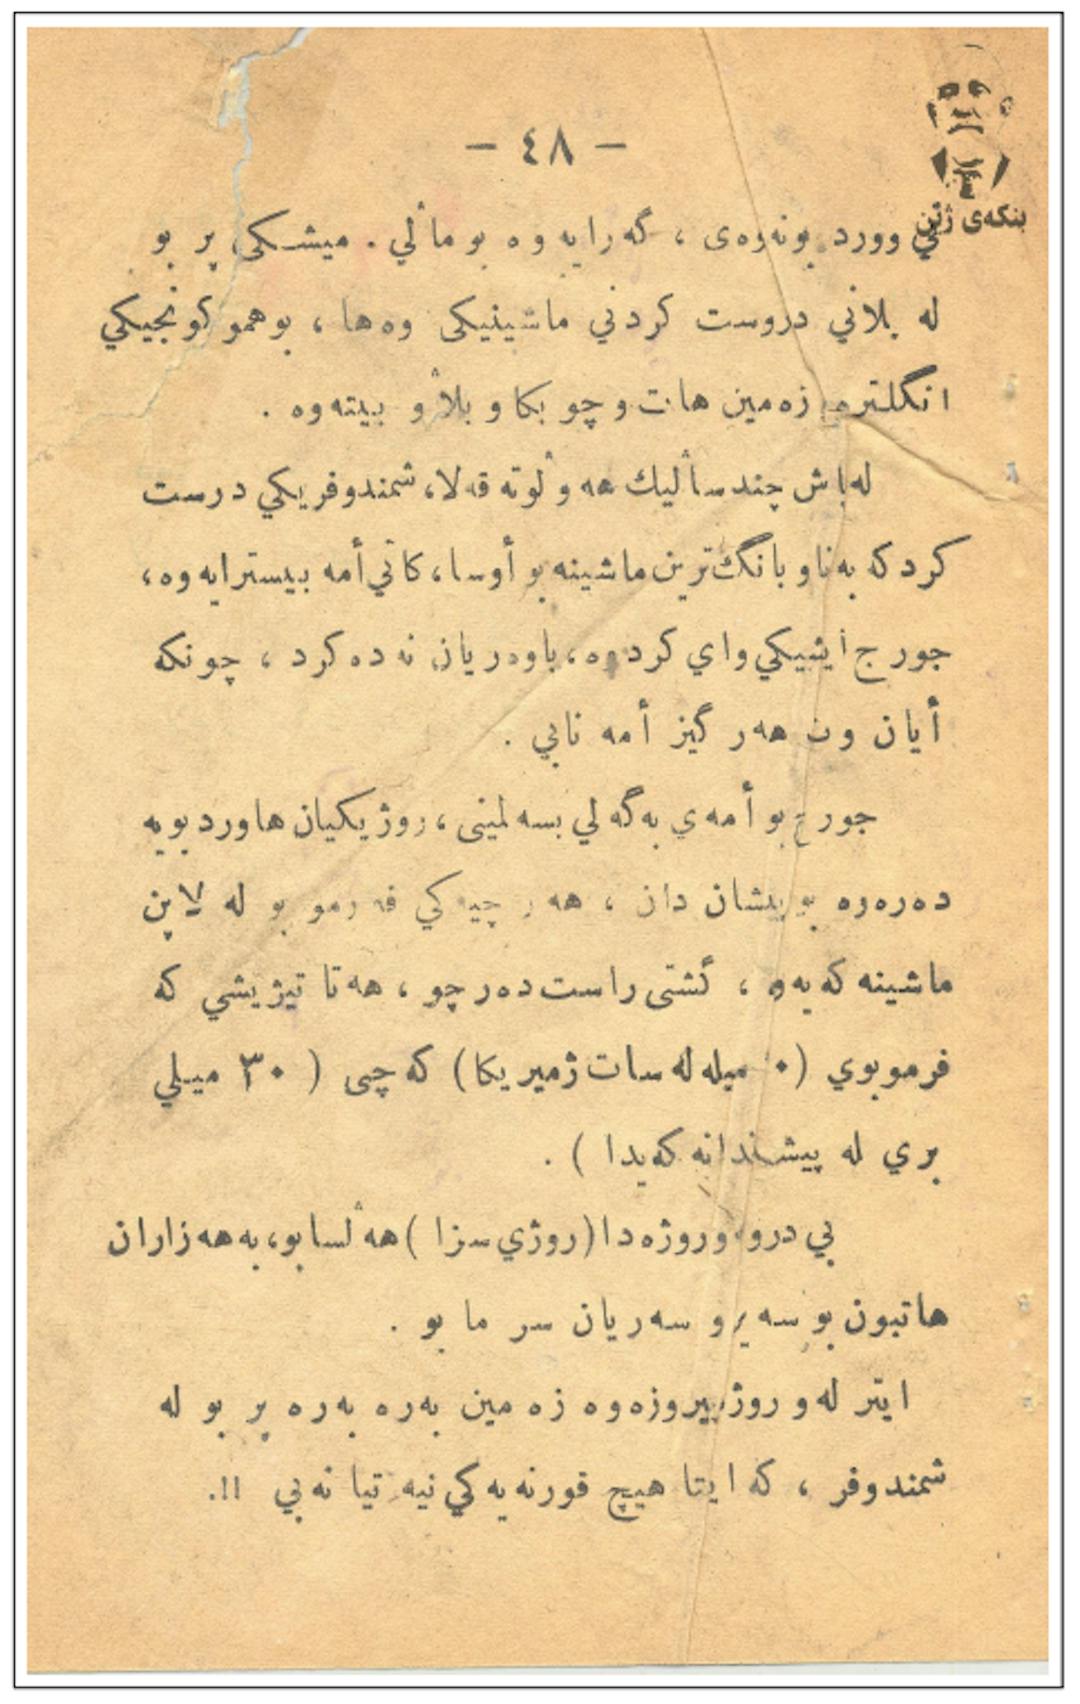 - ٤٨ -
بنكەی ژین
لي وورد بونەوەی ، گەرايە وە بو مالٔي . ميشكى پر بو
لە پلاني دروست كردني ماشينيكى وەها ، بوهمو كونجيكي
انگلترە زەمين هات و چو بكا و بلاٚو ببيتەوە .
لەپاش چند سالٔيك هە و لٔوتە قەلا، شمندوفريكي درست
كرد كە بەناو بانگ ترين ماشينە بو أوسا، كاتي أمە بيسترايەوە،
جورج ايشيكي واي كردوە، باوەريان نە دەكرد ، چونكە
أيان وت هەر گيز أمە نابي .
جورج بو أمەي بەگەلي بسەلمينى، روژيكيان هاورد بويە
دەرەوە بو پيشان دان ، هەر چيەكي فەرمو بو لە لايەن
ماشينە كە يەوە ، گشتى راست دەر چو ، هەتا تيژيشي كە
فرموبوي ( ميلە لە سات ژميريكا) كە چى ( ٣٠ ميلي
بري لە پيشندانە كەيدا ) .
بي درو وروژەدا (روژي سزا )هەلٔسابو، بە هەزاران
هاتبون بو سەيرو سەريان سر ما بو .
ايتر لەو روژ پيروزەوە زەمين بەرە بەرە پر بو لە
شمندوفر ، كە ايتا هيچ قورنە يەكي نيە تيا نەبي !!.